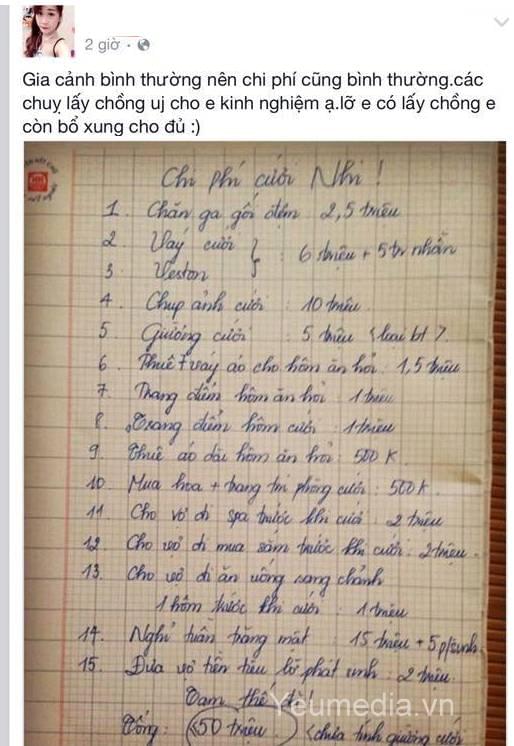 2 giờ ·
Gia cảnh bình thường nên chi phí cũng bình thường.các
chuỵ lấy chồng uj cho e kinh nghiệm ạ.lỡ e có lấy chồng e
còn bổ xung cho đủ :)
Chi phí cưới Nhi !
1. Chăn ga gối đệm 2,5 triệu
2. Váy cưới
: 6 triệu + 5tr nhẫn
3. Veston
4. Chụp ảnh cưới : 10 triệu
5. Giường cưới : 5 triệu < loại bt >
6. Thuê váy áo cho hôm ăn hỏi : 1,5 triệu
7. Trang điểm hôm ăn hỏi : 1 triệu
8. Trang điểm hôm cưới : 1 triệu
9. Thuê áo dài hôm ăn hỏi : 500 K
10. Mua hoa + trang trí phòng cưới : 500 K.
11. Cho vợ đi spa trước khi cưới : 2 triệu
12. Cho vợ đi mua sắm trước khi cưới : 2 triệu.
13. Cho vợ đi ăn uống sang chảnh
1 hôm trước khi cưới : 1 triệu
14. Nghỉ tuần trăng mật : 15 triệu + 5 p/sinh
15. Đưa vợ tiền tiêu lỡ phát sinh : 2 triệu.
Tạm thế đã !
Yeumedia.vn
Tổng : 50 triệu < chưa tính giường cưới